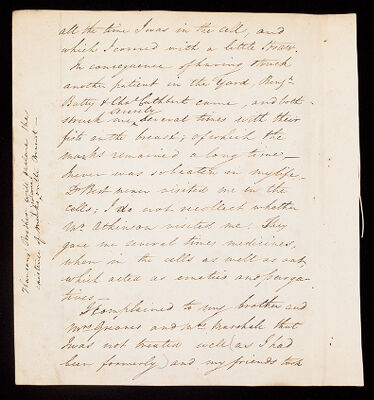 all the time I was in the cell, and
which I covered with a little straw.
In consequence of having struck
another patient in the Yard, Benjn
Batty & Chas Cuthbert came, and both
struck me severely several times with their
fists on the breast; of which the
marks remained a long time —
Never was so beaten in my life —
Dr Best never visited me in the
cells; I do not recollect whether
Mr Atkinson visited me. They
gave me several times medicines,
when in the cells as well as out,
which acted as emetics and purga-
tives —
I complained to my brother and
Mrs Greaves and Mrs Marshall that
I was not treated well (as I had
been formerly) and my friends took
brother will declare the
existence of